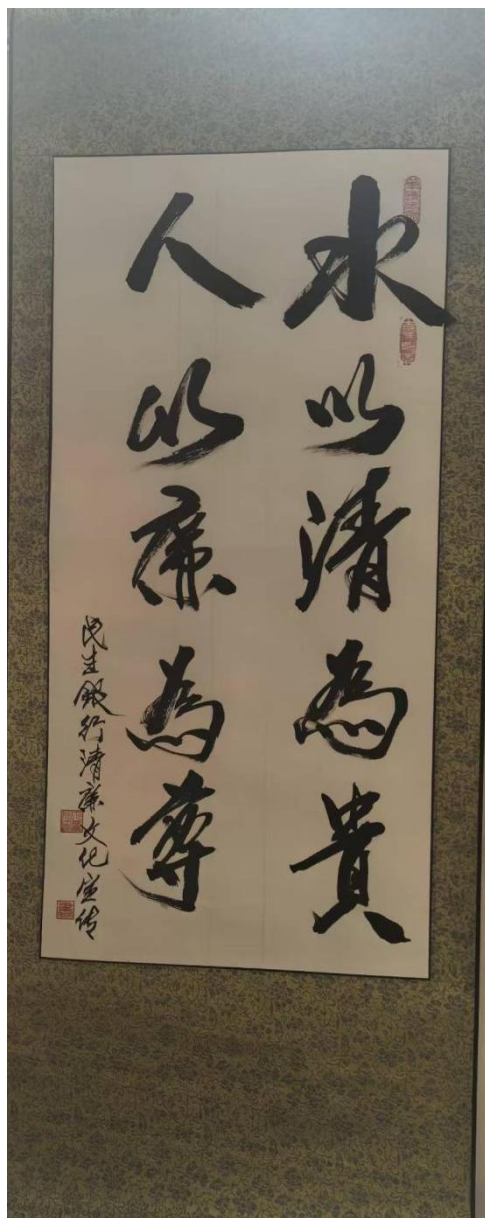 水以清為貴
人以廉為尊
民生銀行清廉文化宣传